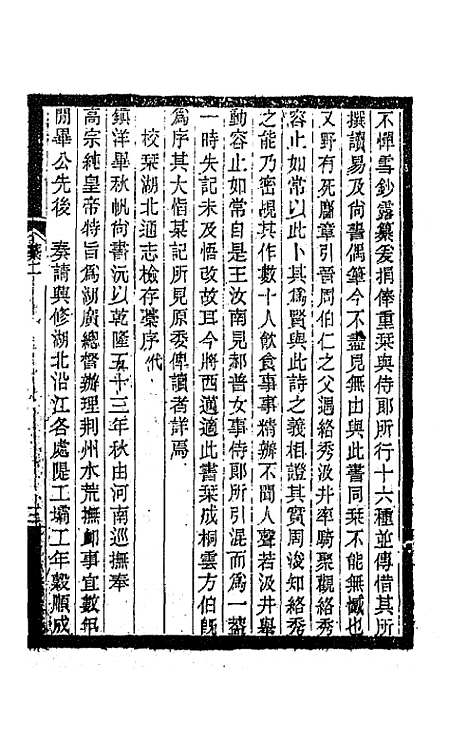 不憚雪鈔露纂爰捐俸重棨與侍郎所行十六種並傳惜其所
撰讀易及尚書偶筆今不盡見無由與此書同栞不能無憾也
又野有死麕章引晉周伯仁之父遇絡秀汲井率騎聚觀絡秀
容止如常以此卜其爲賢與此詩之義相證其實周浚知絡秀
之能乃密覘其作數十人飲食事事精辦不聞人聲若汲井舉
動容止如常自是王汝南見郝普女事侍郎所引混而爲一蓋
一時失記未及悟改故耳今將西邁適此書栞成桐雲方伯既
爲序其大恉某記所見原委俾讀者詳焉
校栞湖北通志檢存藁序代
鎮洋畢秋帆尚書沅以乾隆五十三年秋由河南巡撫奉
高宗純皇帝特旨爲湖廣總督辦理荆州水荒撫卹事宜數年
閒畢公先後　奏請興修湖北沿江各處隄工壩工年穀順成